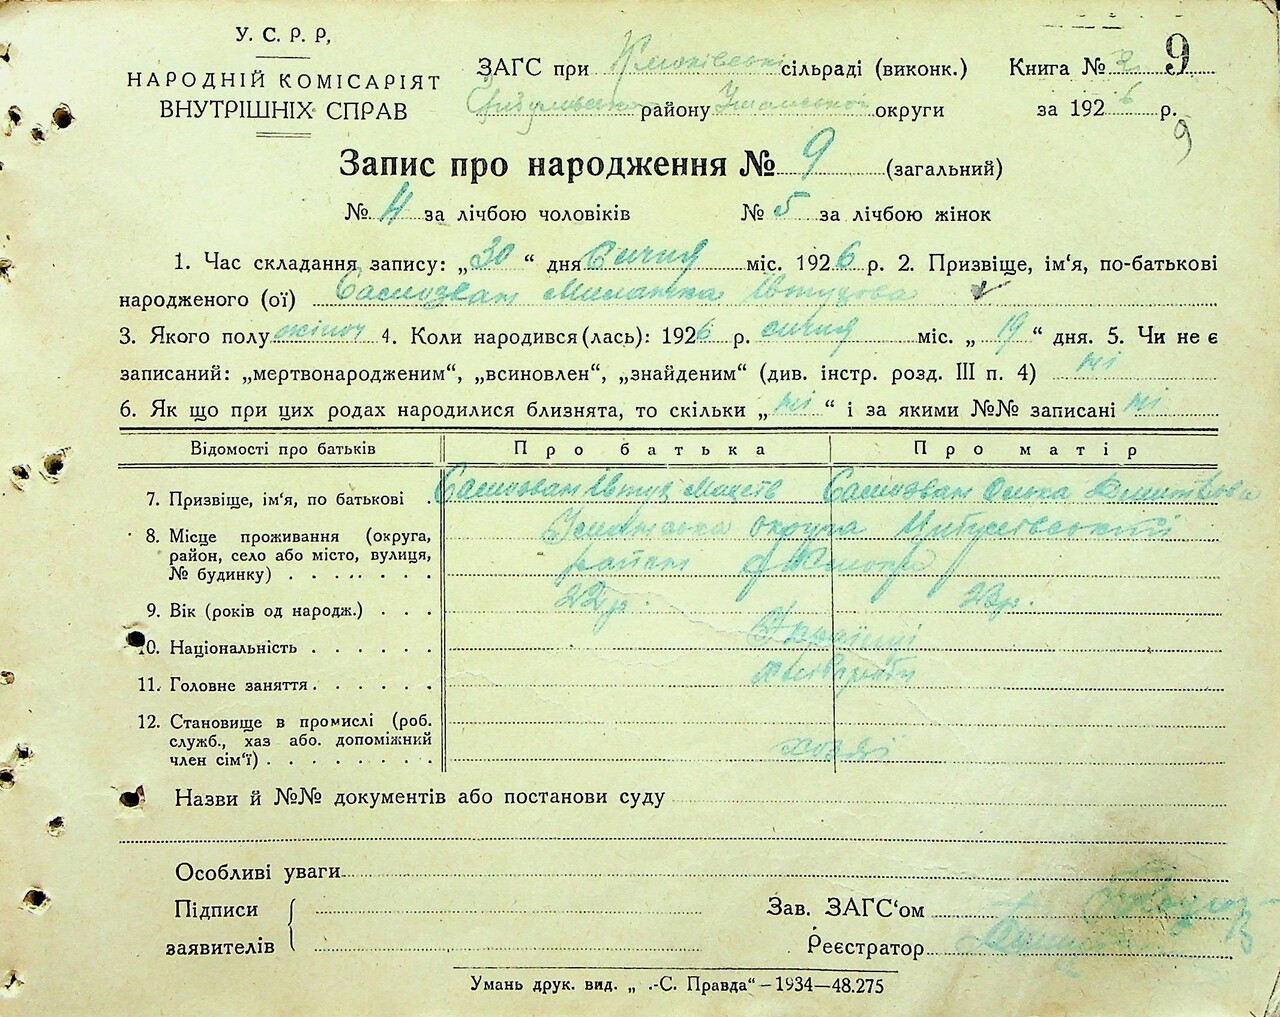 У. С. Р. Р,
НАРОДНІЙ КОМІСАРІЯТ
ВНУТРІШНІХ СПРАВ
ЗАГС при сільраді (виконк.) Книга № 9
району Уманської округи за 1926 р.
9
Запис про народження № 9 (загальний)
№ 4 за лічбою чоловіків № 5 за лічбою жінок
1. Час складання запису: „30“ дня Січня міс. 1926 р. 2. Призвіще, ім'я, по-батькові
народженого (ої) Самозван Миланка Івтухова
3. Якого полу жіноч 4. Коли народився (лась): 1926 р. січня міс. „19“ дня. 5. Чи не є
записаний: „мертвонародженим“, „всиновлен“, „знайденим“ (див. інстр. розд. III п. 4) ні
6. Як що при цих родах народилися близнята, то скільки „ні“ і за якими №№ записані ні
Відомості про батьків Про батька Про матір
7. Призвіще, ім'я, по батькові . Самозван Івтух Самозван Олька
8. Місце проживання (округа, Уманська округа
район, село або місто, вулиця, район
№ будинку) . . . . . . .
9. Вік (років од народж.) . . . 22 р. 23 р.
10. Національність . . . . . . Українці
11. Головне заняття . . . . . . хлібороби
12. Становище в промислі (роб.
служб., хаз або. допоміжний
член сім'ї) . . . . . . . . хозяї
Назви й №№ документів або постанови суду
Особливі уваги
Підписи Зав. ЗАГС'ом
заявителів Реєстратор
Умань друк. вид. „ .-С. Правда“ — 1934—48.275